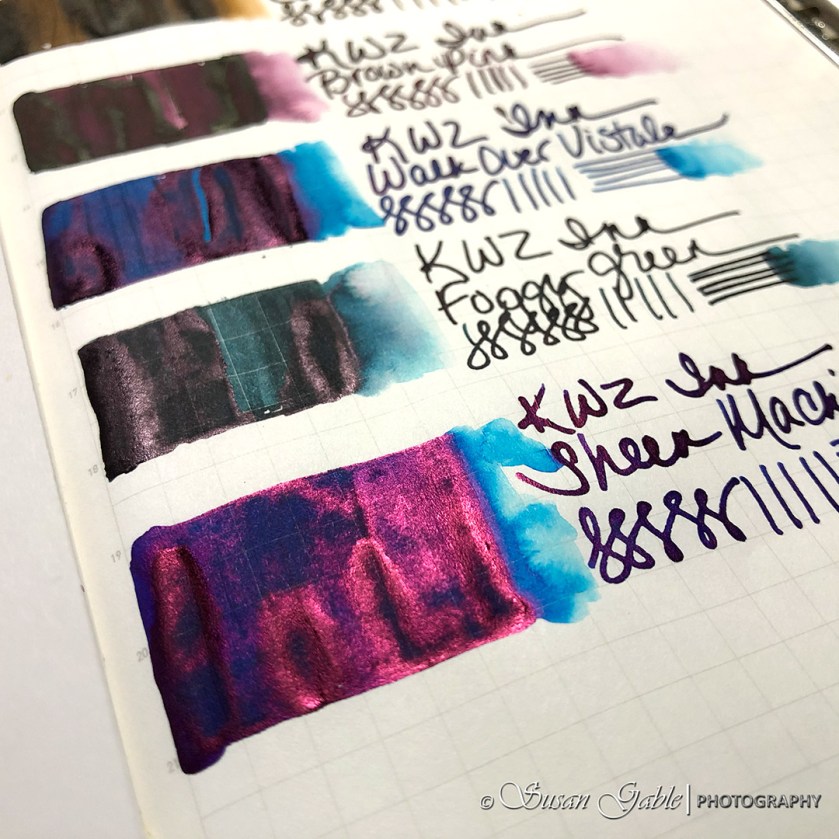 KWZ Ink
Brown Pink
KWZ Ink
Walk Over Vistula
KWZ Ink
Foggy Green
KWZ Ink
Sheen Machi
17
18
19
20
21
© Susan Gable | PHOTOGRAPHY